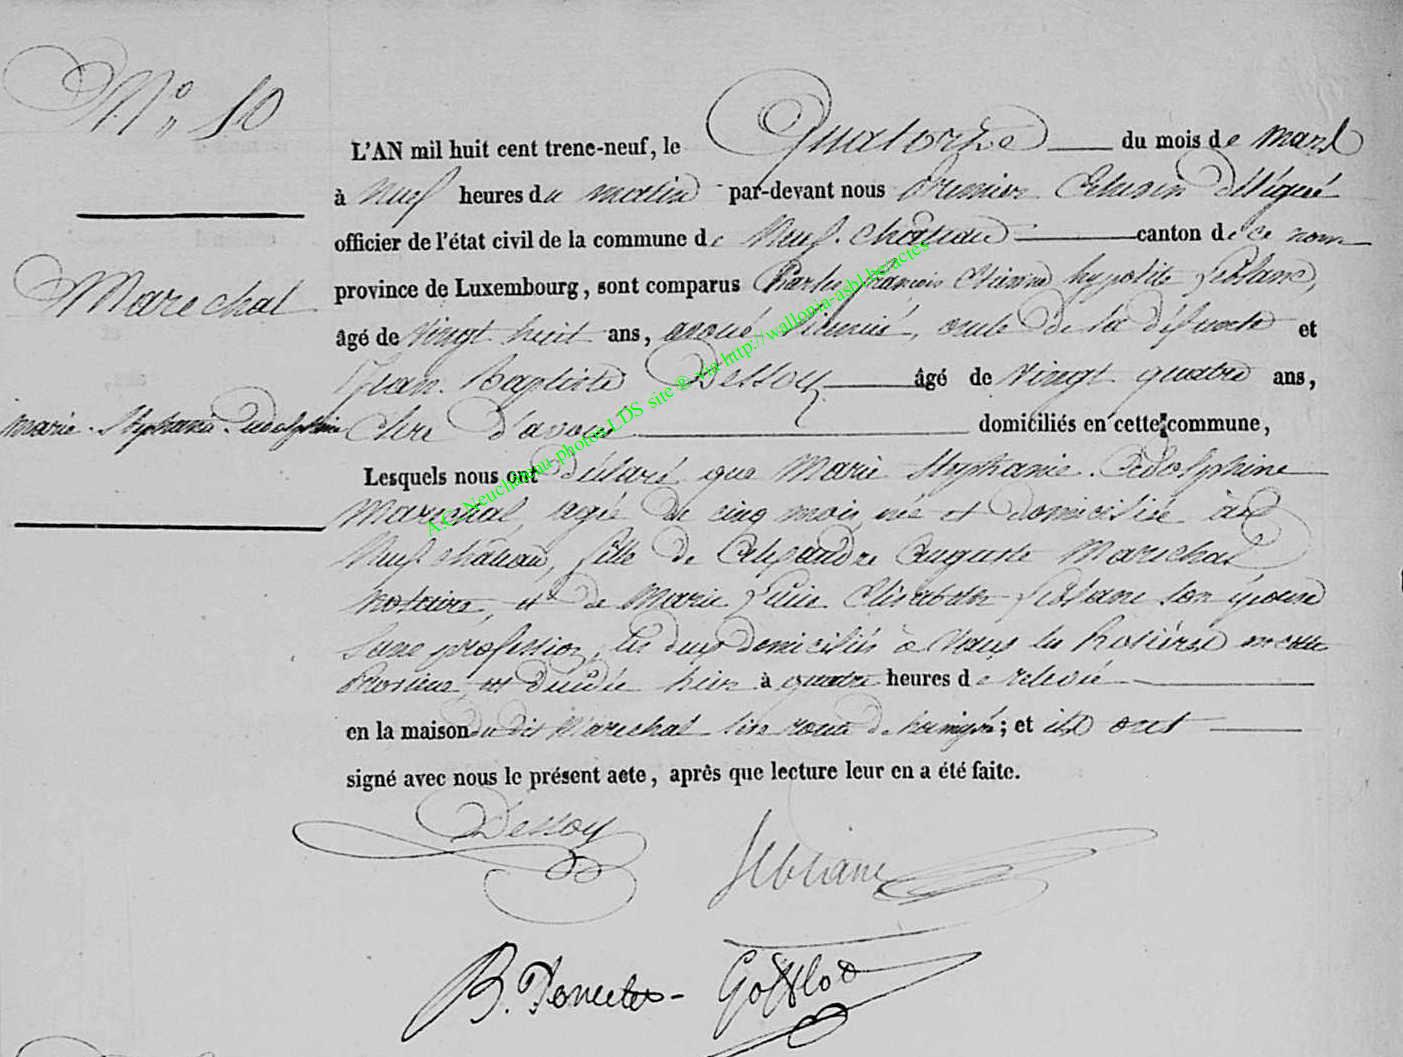 N° 10
L'AN mil huit cent trene-neuf, le Quatorze du mois de mars
à neuf heures du matin par-devant nous Premier Echevin délégué
officier de l'état civil de la commune de Neuf-Château canton de ce nom
Marechal
province de Luxembourg, sont comparus Charles François Etienne hypolite Leblanc,
âgé de vingt huit ans, avoué licencié, oncle de la défunte et
Jean Baptiste Dessoy âgé de Vingt quatre ans,
Marie Stéphanie Adolphine
Clerc d'avoué domiciliés en cette commune,
Lesquels nous ont déclaré que Marie Stéphanie Adolphine
Marechal, agée de cinq mois née et domiciliée à
Neufchateau, fille de Alexandre Auguste Marechal
notaire, et de Marie Lucie Elisabeth Leblanc son épouse
sans profession, les deux domiciliés à Vaux les Rosières en cette
Province, est décédée hier à quatre heures de relevée
en la maison du dit Marechal sise route de ; et ils ont
signé avec nous le présent acte, après que lecture leur en a été faite.
Dessoy
Leblanc
A.C. Neuchateau photos LDS site © via http://wallonia-asbl.be/actes